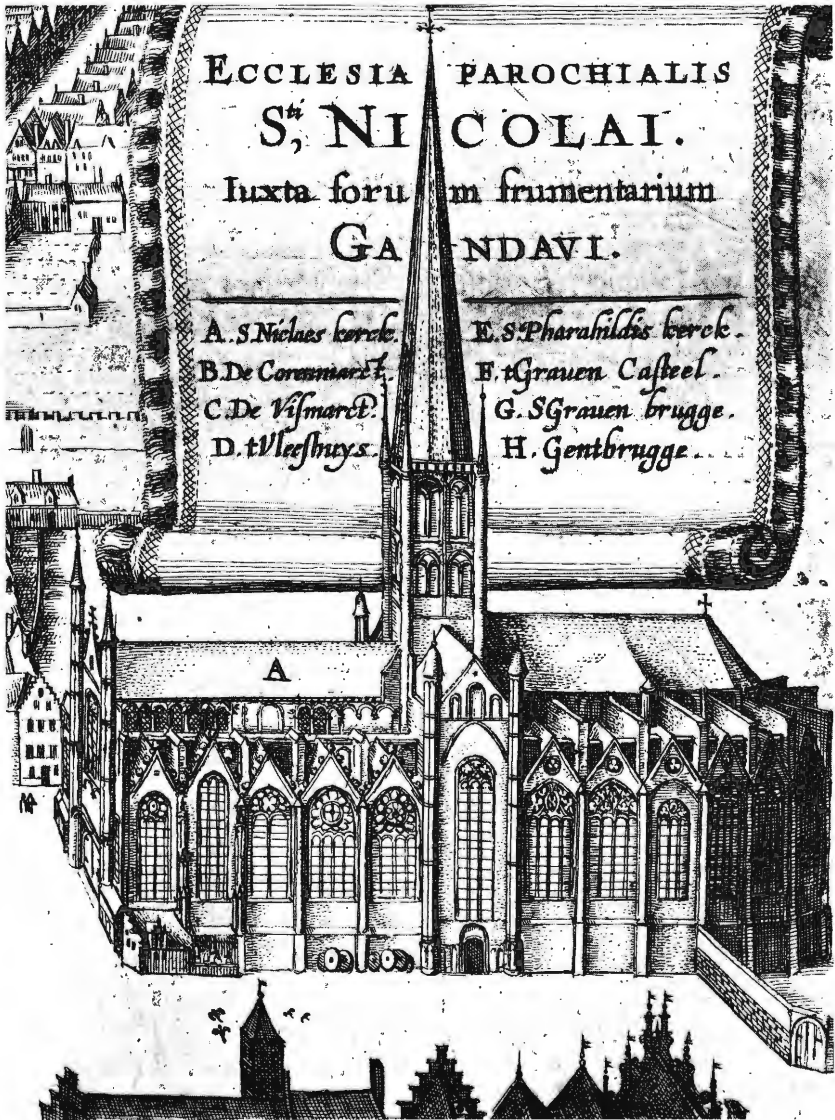 ECCLESIA PAROCHIALIS
S,ti NICOLAI.
Iuxta forum frumentarium
GANDAVI.
A. S. Niclaes kerck.
B. De Corenmarct.
C. De Vismarct.
D. tVleeshuys.
E. Ste Pharahildis kerck.
F. tGrauen Casteel.
G. SGrauen brugge.
H. Gentbrugge.
A